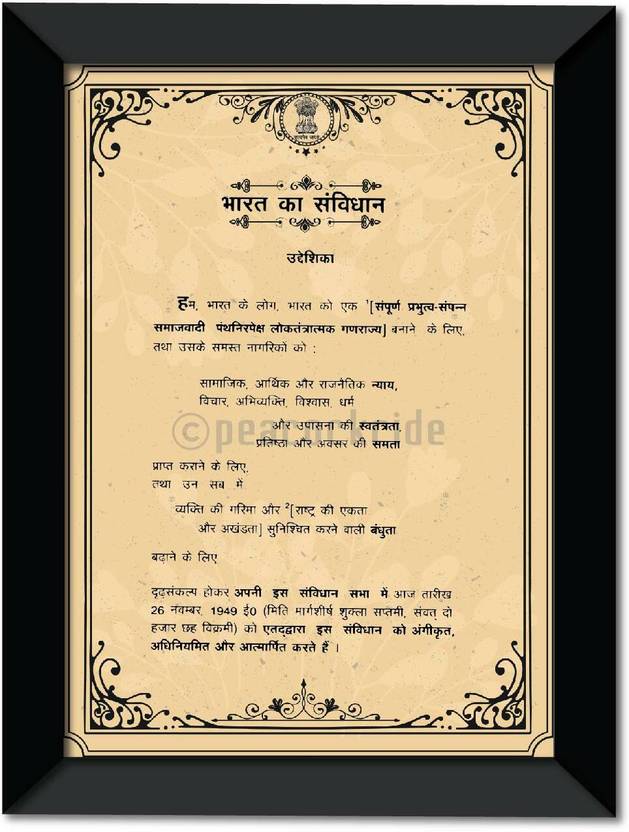 सत्यमेव जयते
भारत का संविधान
उद्देशिका
हम, भारत के लोग, भारत को एक ¹[संपूर्ण प्रभुत्व-संपन्न
समाजवादी पंथनिरपेक्ष लोकतंत्रात्मक गणराज्य] बनाने के लिए,
तथा उसके समस्त नागरिकों को :
सामाजिक, आर्थिक और राजनैतिक न्याय,
विचार, अभिव्यक्ति, विश्वास, धर्म
और उपासना की स्वतंत्रता,
©peacockride
प्रतिष्ठा और अवसर की समता
प्राप्त कराने के लिए,
तथा उन सब में
व्यक्ति की गरिमा और ²[राष्ट्र की एकता
और अखंडता] सुनिश्चित करने वाली बंधुता
बढ़ाने के लिए
दृढ़संकल्प होकर अपनी इस संविधान सभा में आज तारीख
26 नवम्बर, 1949 ई0 (मिति मार्गशीर्ष शुक्ला सप्तमी, संवत् दो
हजार छह विक्रमी) को एतद्द्वारा इस संविधान को अंगीकृत,
अधिनियमित और आत्मार्पित करते हैं ।